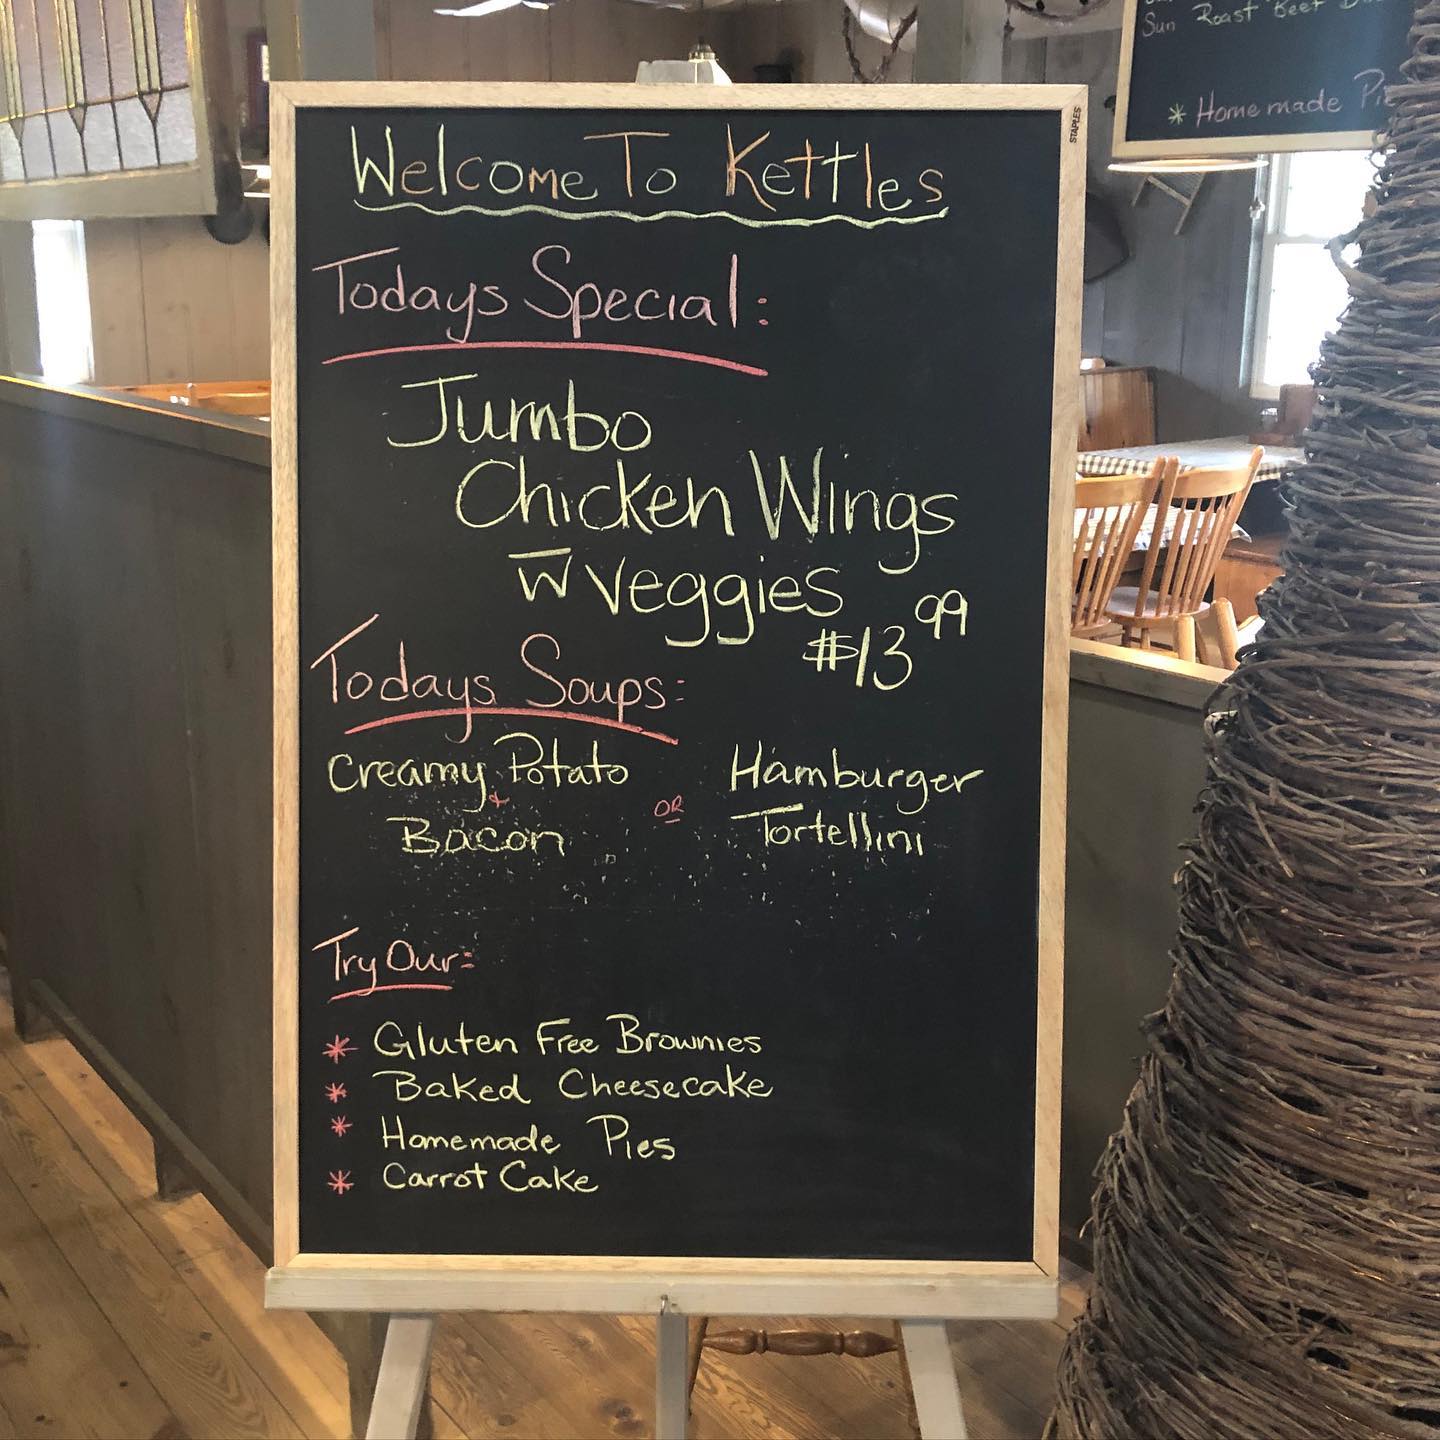 Welcome To Kettles
Todays Special:
Jumbo
Chicken Wings
w̅ Veggies
$13.99
Todays Soups:
Creamy Potato
&
Bacon
OR
Hamburger
Tortellini
Try Our:
* Gluten Free Brownies
* Baked Cheesecake
* Homemade Pies
* Carrot Cake
STAPLES
Sun Roast Beef
* Homemade